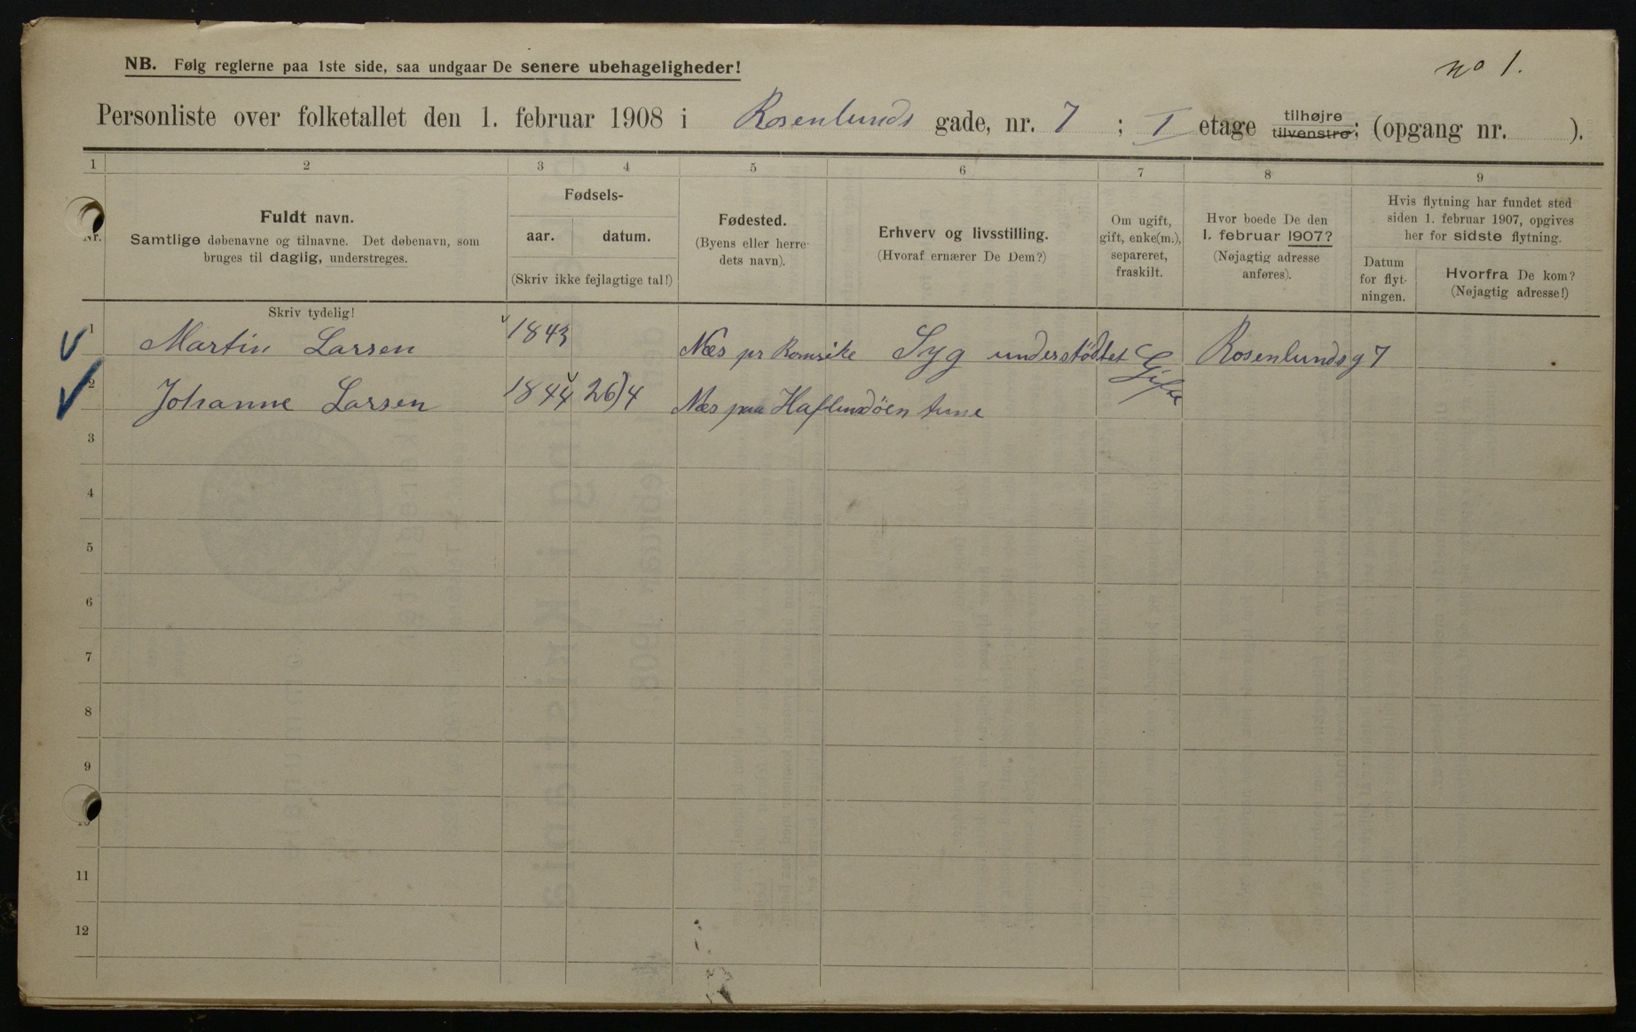 NB. Følg reglerne paa 1ste side, saa undgaar De senere ubehageligheder!
no 1.
Personliste over folketallet den 1. februar 1908 i Rosenlunds gade, nr. 7 ; I etage tilhøjre tilvenstre; (opgang nr. ).
1 2 3 4 5 6 7 8 9
Nr.
Fuldt navn.
Samtlige døbenavne og tilnavne. Det døbenavn, som
bruges til daglig, understreges.
Fødsels-
aar. datum.
(Skriv ikke fejlagtige tal!)
Fødested.
(Byens eller herre-
dets navn).
Erhverv og livsstilling.
(Hvoraf ernærer De Dem?)
Om ugift,
gift, enke(m.),
separeret,
fraskilt.
Hvor boede De den
1. februar 1907?
(Nøjagtig adresse
anføres).
Hvis flytning har fundet sted
siden 1. februar 1907, opgives
her for sidste flytning.
Datum
for flyt-
ningen.
Hvorfra De kom?
(Nøjagtig adresse!)
Skriv tydelig!
1 Martin Larsen 1843 Næs pr Romsike Syg understödtet Gift Rosenlundsg 7
2 Johanne Larsen 1844 26/4 Næs paa
3
4
5
6
7
8
9
10
11
12